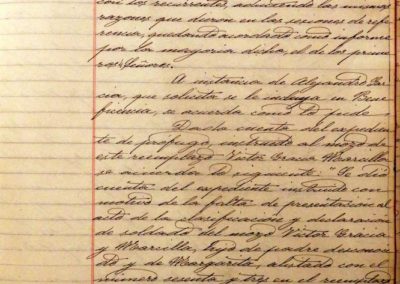 con los recurrentes, aduciendo las mismas
razones que dieron en las sesiones de refe-
rencia, quedando acordado como informe
por la mayoria dicha, el de los prime-
ros Señores.
A instancia de Alejandro Gar-
cia, que solicita se le incluya en Bene-
ficencia, se acuerda como lo pide.
Dada cuenta del expedien-
te de profugo, instruido al mozo de
este reemplazo Victor Gracia Marcilla
se acuerda lo siguiente: "Se dió
cuenta del expediente instruido con
motivo de la falta de presentación al
acto de la clasificación y declaración
de soldados del mozo Victor Gracia
y Marcilla, hijo de padre descono-
cido y de Margarita, alistado con el
número sesenta y tres en el reemplazo